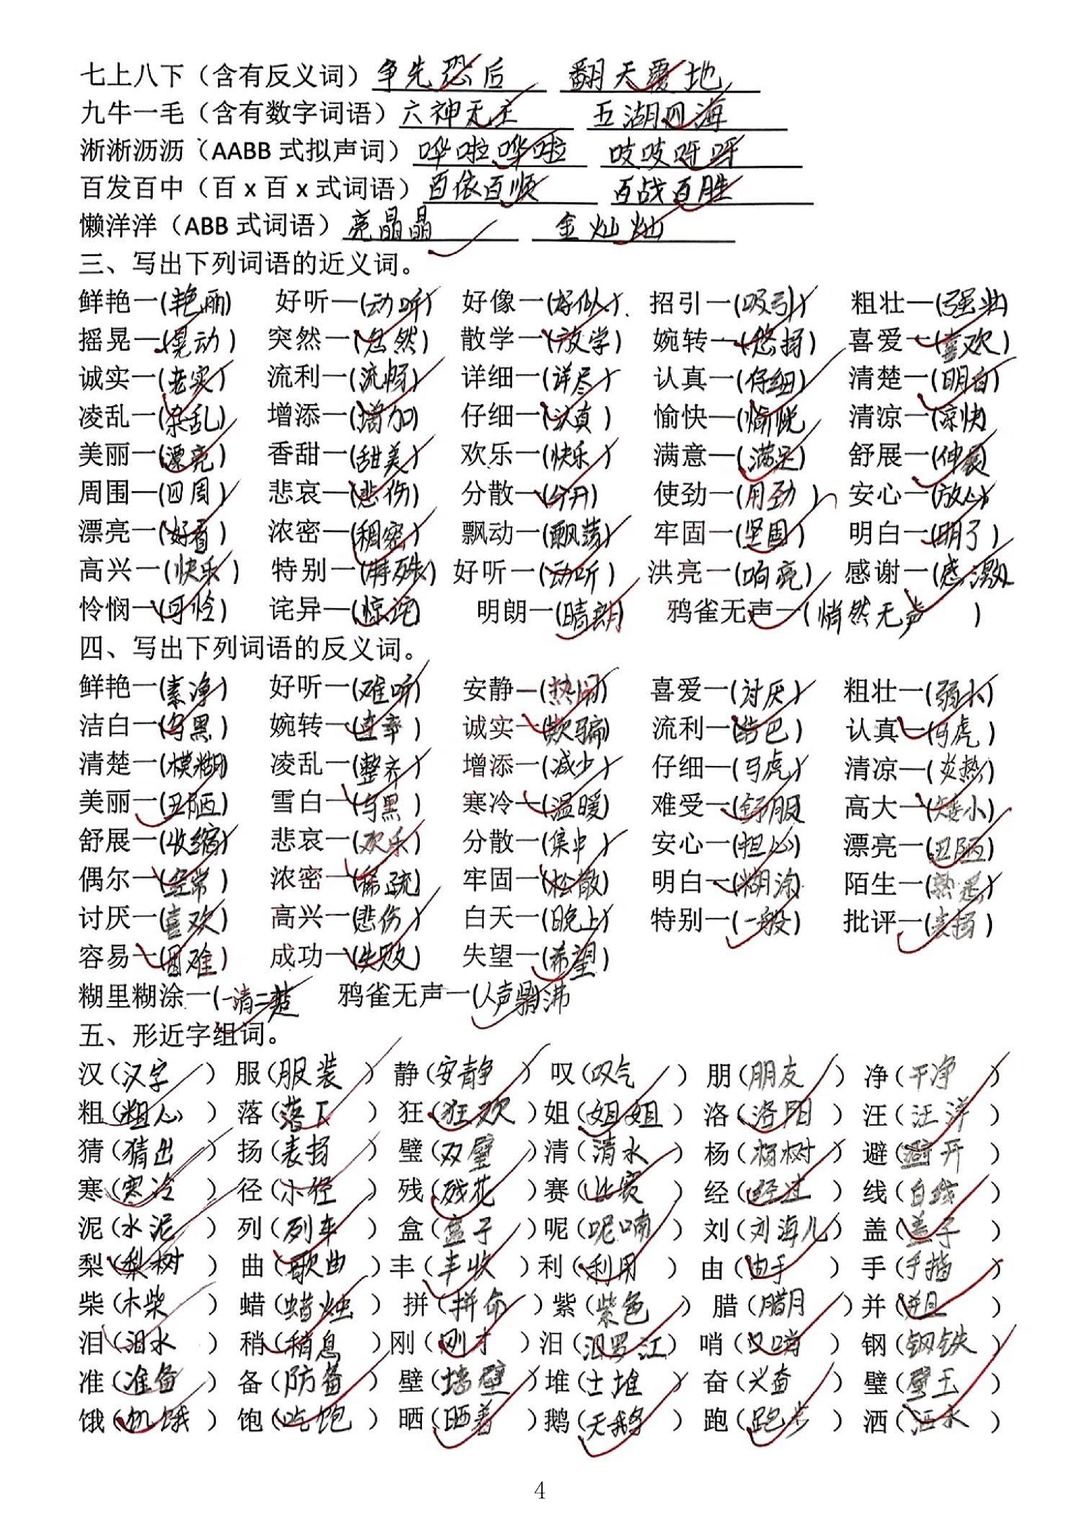 七上八下（含有反义词）争先恐后 翻天覆地
九牛一毛（含有数字词语）六神无主 五湖四海
淅淅沥沥（AABB 式拟声词）哗啦哗啦 吱吱呀呀
百发百中（百 x 百 x 式词语）百依百顺 百战百胜
懒洋洋（ABB 式词语）亮晶晶 金灿灿
三、写出下列词语的近义词。
鲜艳—(艳丽) 好听—(动听) 好像—(好似) 招引—(吸引) 粗壮—(强壮)
摇晃—(晃动) 突然—(忽然) 散学—(放学) 婉转—(悠扬) 喜爱—(喜欢)
诚实—(老实) 流利—(流畅) 详细—(详尽) 认真—(仔细) 清楚—(明白)
凌乱—(杂乱) 增添—(增加) 仔细—(认真) 愉快—(愉悦) 清凉—(凉快)
美丽—(漂亮) 香甜—(甜美) 欢乐—(快乐) 满意—(满足) 舒展—(伸展)
周围—(四周) 悲哀—(悲伤) 分散—(分开) 使劲—(用劲) 安心—(放心)
漂亮—(好看) 浓密—(稠密) 飘动—(飘荡) 牢固—(坚固) 明白—(明了)
高兴—(快乐) 特别—(特殊) 好听—(动听) 洪亮—(响亮) 感谢—(感激)
怜悯—(可怜) 诧异—(惊诧) 明朗—(晴朗) 鸦雀无声—(悄然无声)
四、写出下列词语的反义词。
鲜艳—(素净) 好听—(难听) 安静—(热闹) 喜爱—(讨厌) 粗壮—(弱小)
洁白—(乌黑) 婉转—(直率) 诚实—(欺骗) 流利—(结巴) 认真—(马虎)
清楚—(模糊) 凌乱—(整齐) 增添—(减少) 仔细—(马虎) 清凉—(炎热)
美丽—(丑陋) 雪白—(乌黑) 寒冷—(温暖) 难受—(舒服) 高大—(矮小)
舒展—(收缩) 悲哀—(欢乐) 分散—(集中) 安心—(担心) 漂亮—(丑陋)
偶尔—(经常) 浓密—(稀疏) 牢固—(松散) 明白—(糊涂) 陌生—(熟悉)
讨厌—(喜欢) 高兴—(悲伤) 白天—(晚上) 特别—(一般) 批评—(表扬)
容易—(困难) 成功—(失败) 失望—(希望)
糊里糊涂—(一清二楚 鸦雀无声—(人声鼎沸
五、形近字组词。
汉（汉字） 服（服装） 静（安静） 叹（叹气） 朋（朋友） 净（干净）
粗（粗心） 落（落下） 狂（狂欢） 姐（姐姐） 洛（洛阳） 汪（汪洋）
猜（猜出） 扬（表扬） 璧（双璧） 清（清水） 杨（杨树） 避（避开）
寒（寒冷） 径（小径） 残（残花） 赛（比赛） 经（经过） 线（白线）
泥（水泥） 列（列车） 盒（盒子） 呢（呢喃） 刘（刘海儿） 盖（盖子）
梨（梨树） 曲（歌曲） 丰（丰收） 利（利用） 由（由于） 手（手指）
柴（木柴） 蜡（蜡烛） 拼（拼命） 紫（紫色） 腊（腊月） 并（并且）
泪（泪水） 稍（稍息） 刚（刚才） 汨（汨罗江） 哨（口哨） 钢（钢铁）
准（准备） 备（防备） 壁（墙壁） 堆（土堆） 奋（兴奋） 璧（璧玉）
饿（饥饿） 饱（吃饱） 晒（晒着） 鹅（天鹅） 跑（跑步） 洒（洒水）
4